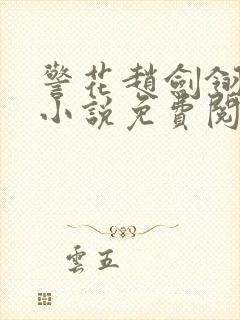 警花趙劍
小說免費閱
雲五